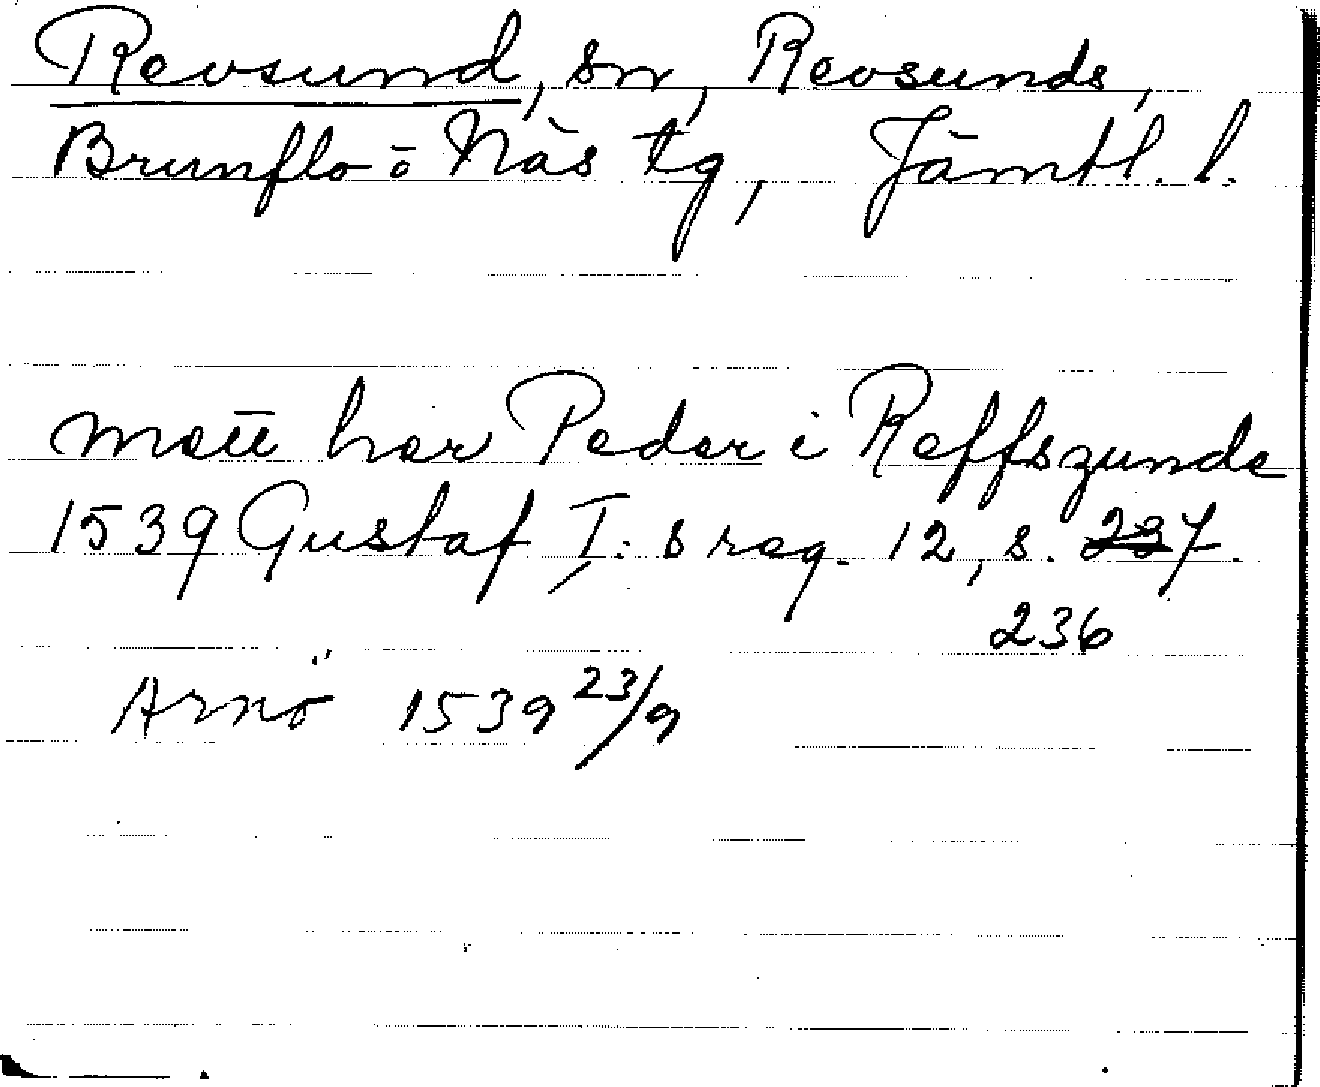 Revsund, sn, Revsunds,
Brunflo ö Näs tg, Jämtl. l.
her Peder i Reffszunde
1539 Gustaf I:s reg. 12, s. 237.
236
Arnö 1539 23/9